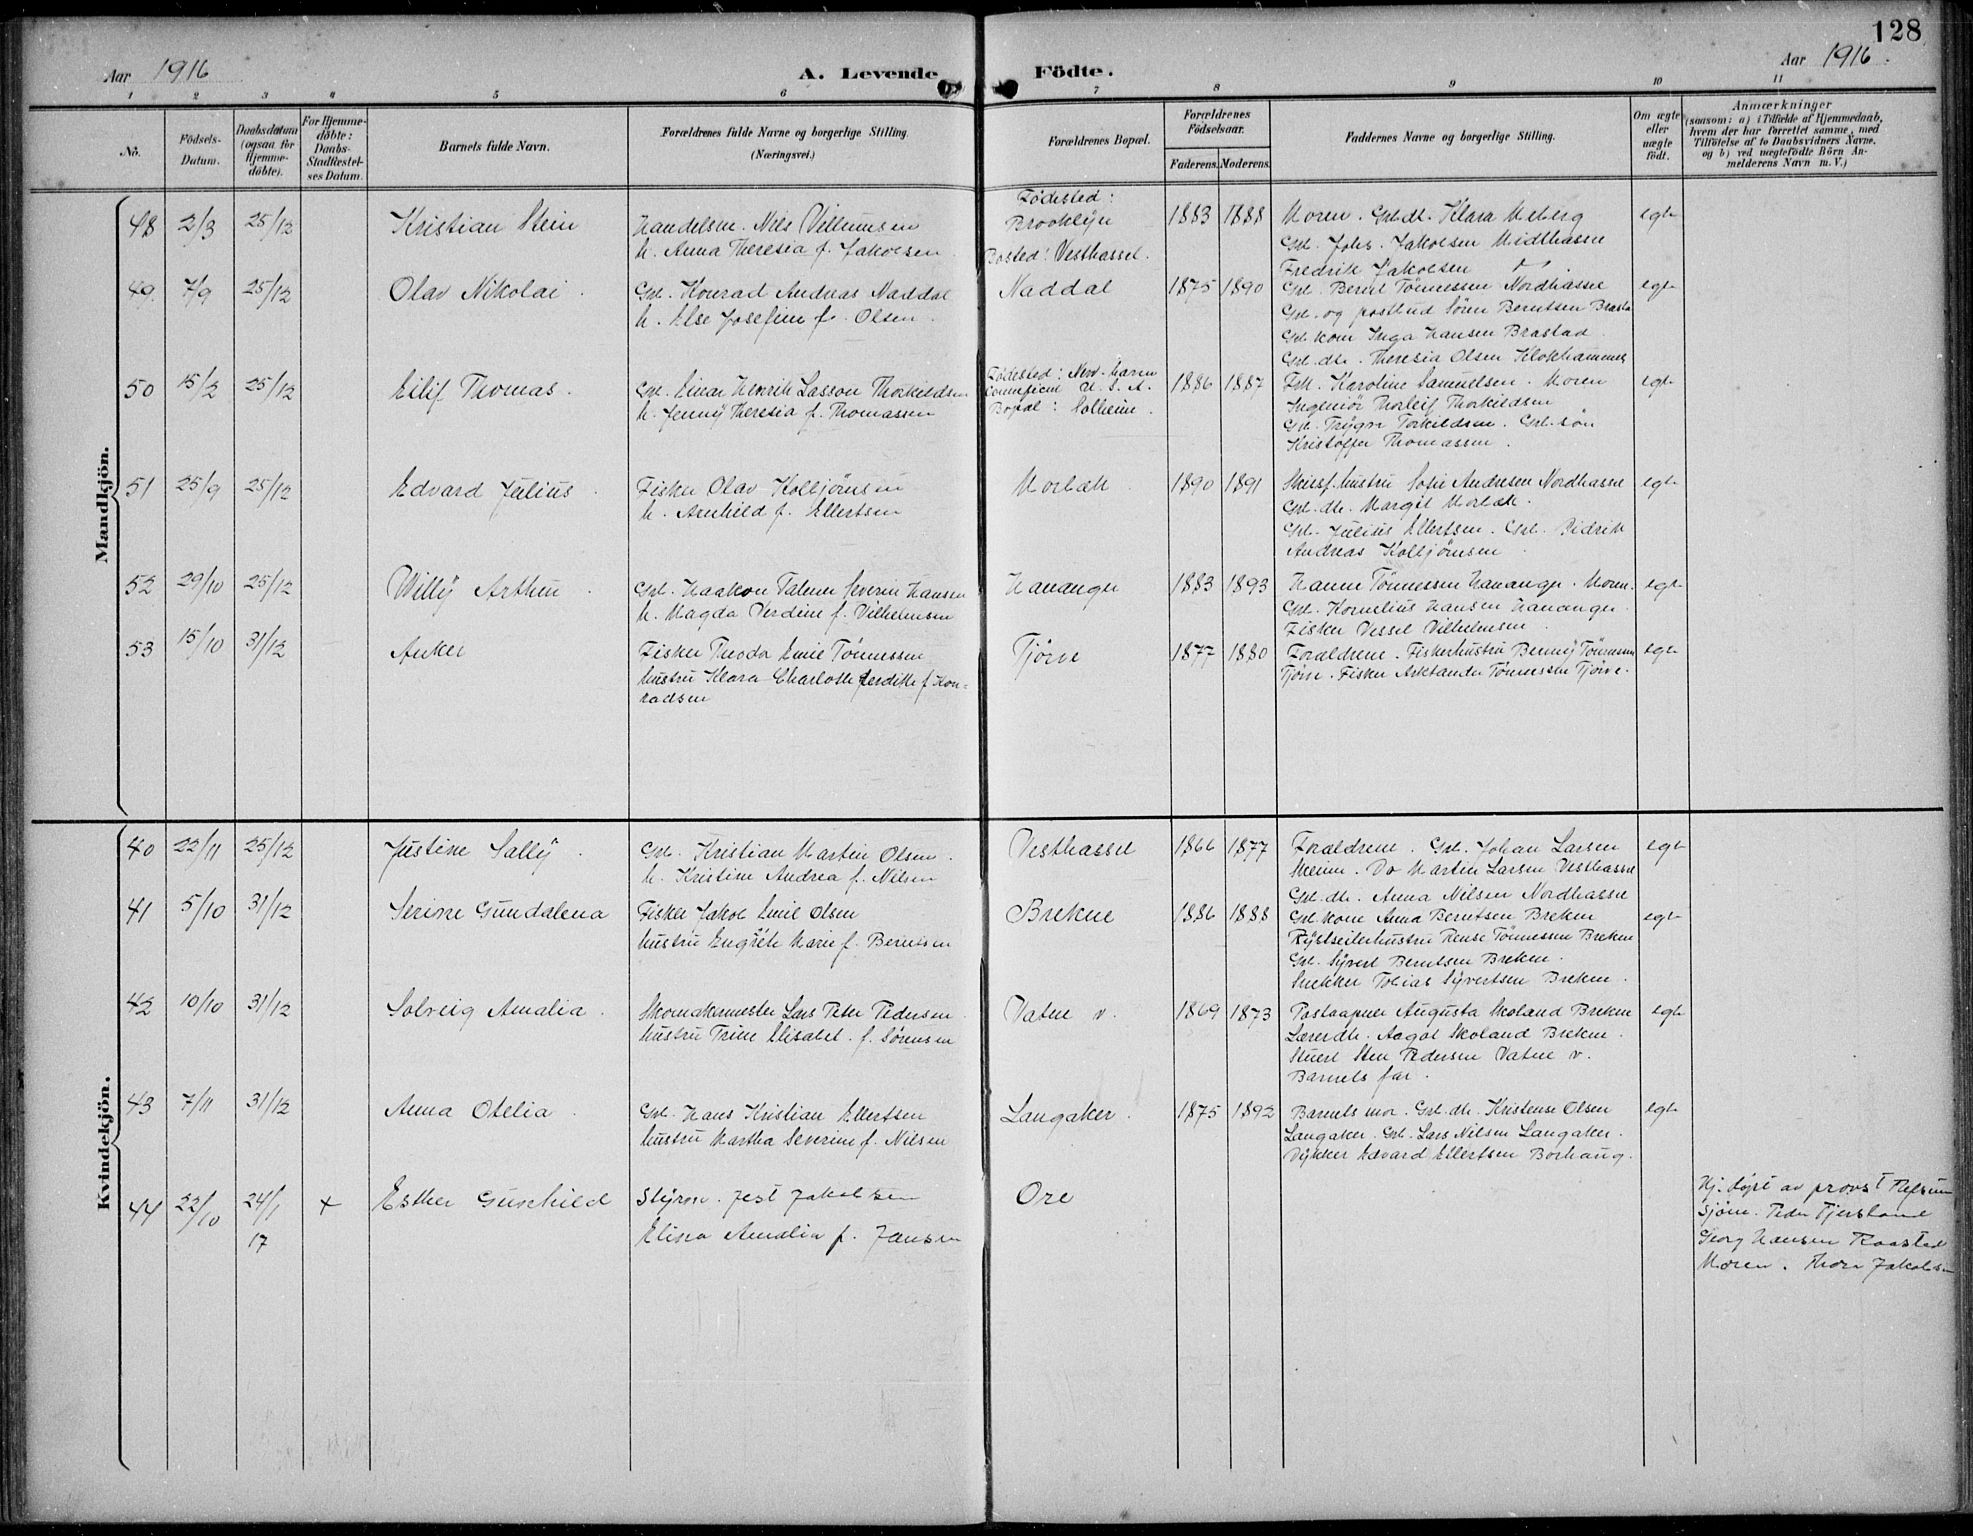 128
Aar 1916
A. Levende
Födte.
Aar 1916.
1 2 3 4 5 6 7 8 9 10 11
No.
Födsels-
Datum.
Daabsdatum
(ogsaa for
Hjemme-
døbte).
For Hjemme-
döbte:
Daabs-
Stadfæstel-
ses Datum.
Barnets fulde Navn.
Forældrenes fulde Navne og borgerlige Stilling.
(Næringsvei.)
Forældrenes Bopæl.
Forældrenes
Födselsaar.
Faderens. Moderens.
Faddernes Navne og borgerlige Stilling.
Om ægte
eller
uægte
födt.
Anmærkninger
(saasom: a) i Tilfælde af Hjemmedaab,
hvem der har forrettet samme, med
Tilföielse af to Daabsvidners Navne,
og b) ved uægtefödte Börn An-
melderens Navn m. V.)
Mandkjön.
48 2/3 25/12 Kristian Stein
Handelsm. Nils Villumsen
h. Anna Theresia f. Jakobsen
Fødested:
Brooklyn
Bosted: Vesthassel.
1883 1888
Moren. Grl. dt. Klara Meberg
Grl. Johs. Jakobsen Midthassel
Fredrik Jakobsen
egte
49 7/9 25/12 Olav Nikolai
Grl. Konrad Andreas Naddal
h. Else Josefine f. Olsen
Naddal
1875 1890
Grl. Bernt Tønnessen Nordhassel
Grl. og postbud Søren Berntsen Brastad
Grl. kone Inga Hansen Brastad
Grl. dtr. Theresia Olsen Klokhammer
egte
50 15/2 25/12 Eilif Thomas.
Grl. Einar Henrik Lasson Thorkildsen
h. Jenny Theresia f. Thomassen
Fødested: New-Haven
Conneficut U.S.A.
Bopæl: Solheim.
1886 1887
Frk. Karoline Samuelsen. Moren
Ingeniør Thorleif Thorkildsen
Grl. Trygve Torkildsen. Grl. søn
Kristoffer Thomassen.
egte
51 25/9 25/12 Edvard Julius
Fisker Olav Kolbjørnsen
h. Arnhild f. Ellertsen
1890 1891
Skipsf. hustru Sofie Andresen Nordhassel
Grl. dtr. Margit
Grl. Julius Ellertsen. Grl. Didrik
Andreas Kolbjørnsen
egte
52 29/10 25/12 Willy Arthur
Grl. Haakon Severin Hansen
h. Magda Verdine f. Vilhelmsen
Hananger
1883 1893
Hanne Tønnessen Hananger. Moren.
Grl. Kornelius Hansen Hananger.
Fisker Vessel Vilhelmsen
egte
53 15/10 31/12 Anker
Fisker Theodor Emil Tønnessen
hustru Klara Charlotte f. Kon-
radsen
Tjørve
1877 1880
Forældrene. Fiskerhustru Benny Tønnessen
Tjørve. Fisker Tønnessen Tjørve.
egte
Kvindekjön.
40 22/11 25/12 Justine Sally
Grl. Kristian Martin Olsen.
h. Kristine Andrea f. Nilsen
Vesthassel
1866 1877
Forældrene. Grl. Johan Larsen
Do Martin Larsen Vesthassel
Grl. dtr. Anna Nilsen Nordhassel
egte
41 5/10 31/12 Serine Gundalena
Fisker Jakob Emil Olsen
hustru Marie f. Berntsen
Brekne
1886 1888
Grl. kone Anna Berntsen Brekne
hustru Tønnessen Brekne
Grl. Syvert Berntsen Brekne.
Snekker Tobias Syvertsen Brekne.
egte
42 10/10 31/12 Solveig Amalia.
Skomakermester Lars Peter Pedersen
hustru Trine Elisabet. f. Sørensen
Vatne v.
1869 1873
Postaapner Augusta Skoland Brekne
Lærerdtr. Aagot Skoland Brekne.
Stuert Sten Pedersen Vatne v.
Barnets far.
egte
43 7/11 31/12 Anna Otelia
Grl. Hans Kristian Ellertsen
hustru Martha Severine f. Nilsen
Langaker.
1875 1892
Barnets mor. Grl. dtr. Kristense Olsen
Langaker. Grl. Lars Nilsen Langaker.
Dykker Edvard Ellertsen Borhaug.
egte
44 22/10 24/1 17 + Esther Gunhild
Styrm. Jakobsen
Amalia f. Jansen
Ore
Hj. døpt av provst
Sjøm. Peder Tjersland
Georg Hansen
Moren. Thora Jakobsen